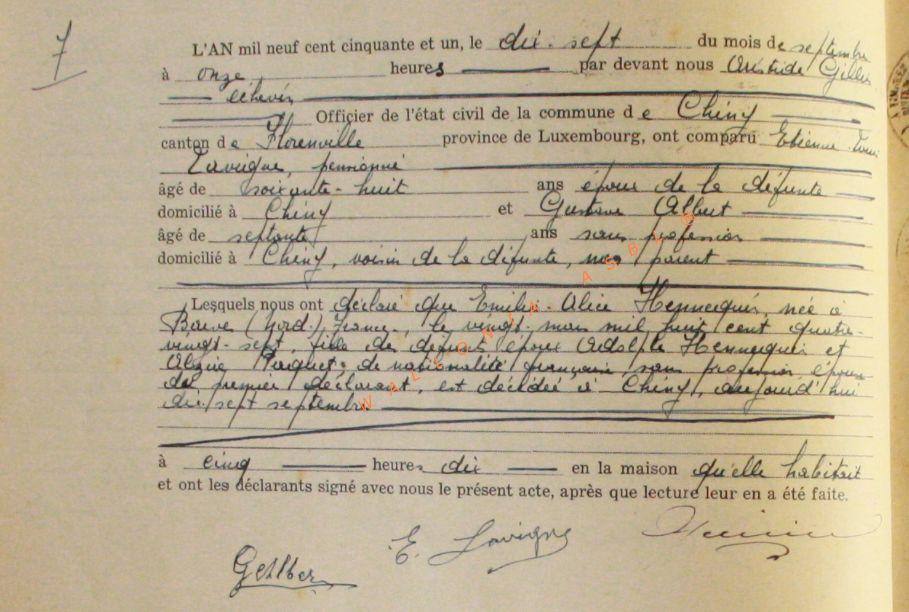 7
L'AN mil neuf cent cinquante et un, le dix-sept du mois de septembre
à onze heures par devant nous Aristide Gillis
échevin
Officier de l'état civil de la commune de Chiny
canton de Florenville province de Luxembourg, ont comparu Etienne
Lavigne, pensionné
âgé de soixante-huit ans époux de la défunte
domicilié à Chiny et Gustave Albert
âgé de septante ans sans profession
domicilié à Chiny, voisin de la défunte, non parent
Lesquels nous ont déclaré que Emilie-Alice Hennequin, née à
(Nord) France, le vingt mars mil huit cent quatre-
vingt-sept, fille des défunts époux Adolphe Hennequin et
Paquet, de nationalité française, sans profession, épouse
du premier déclarant, est décédée à Chiny, aujourd'hui
dix sept septembre
à cinq heures dix en la maison qu'elle habitait
et ont les déclarants signé avec nous le présent acte, après que lecture leur en a été faite.
E. Lavigne